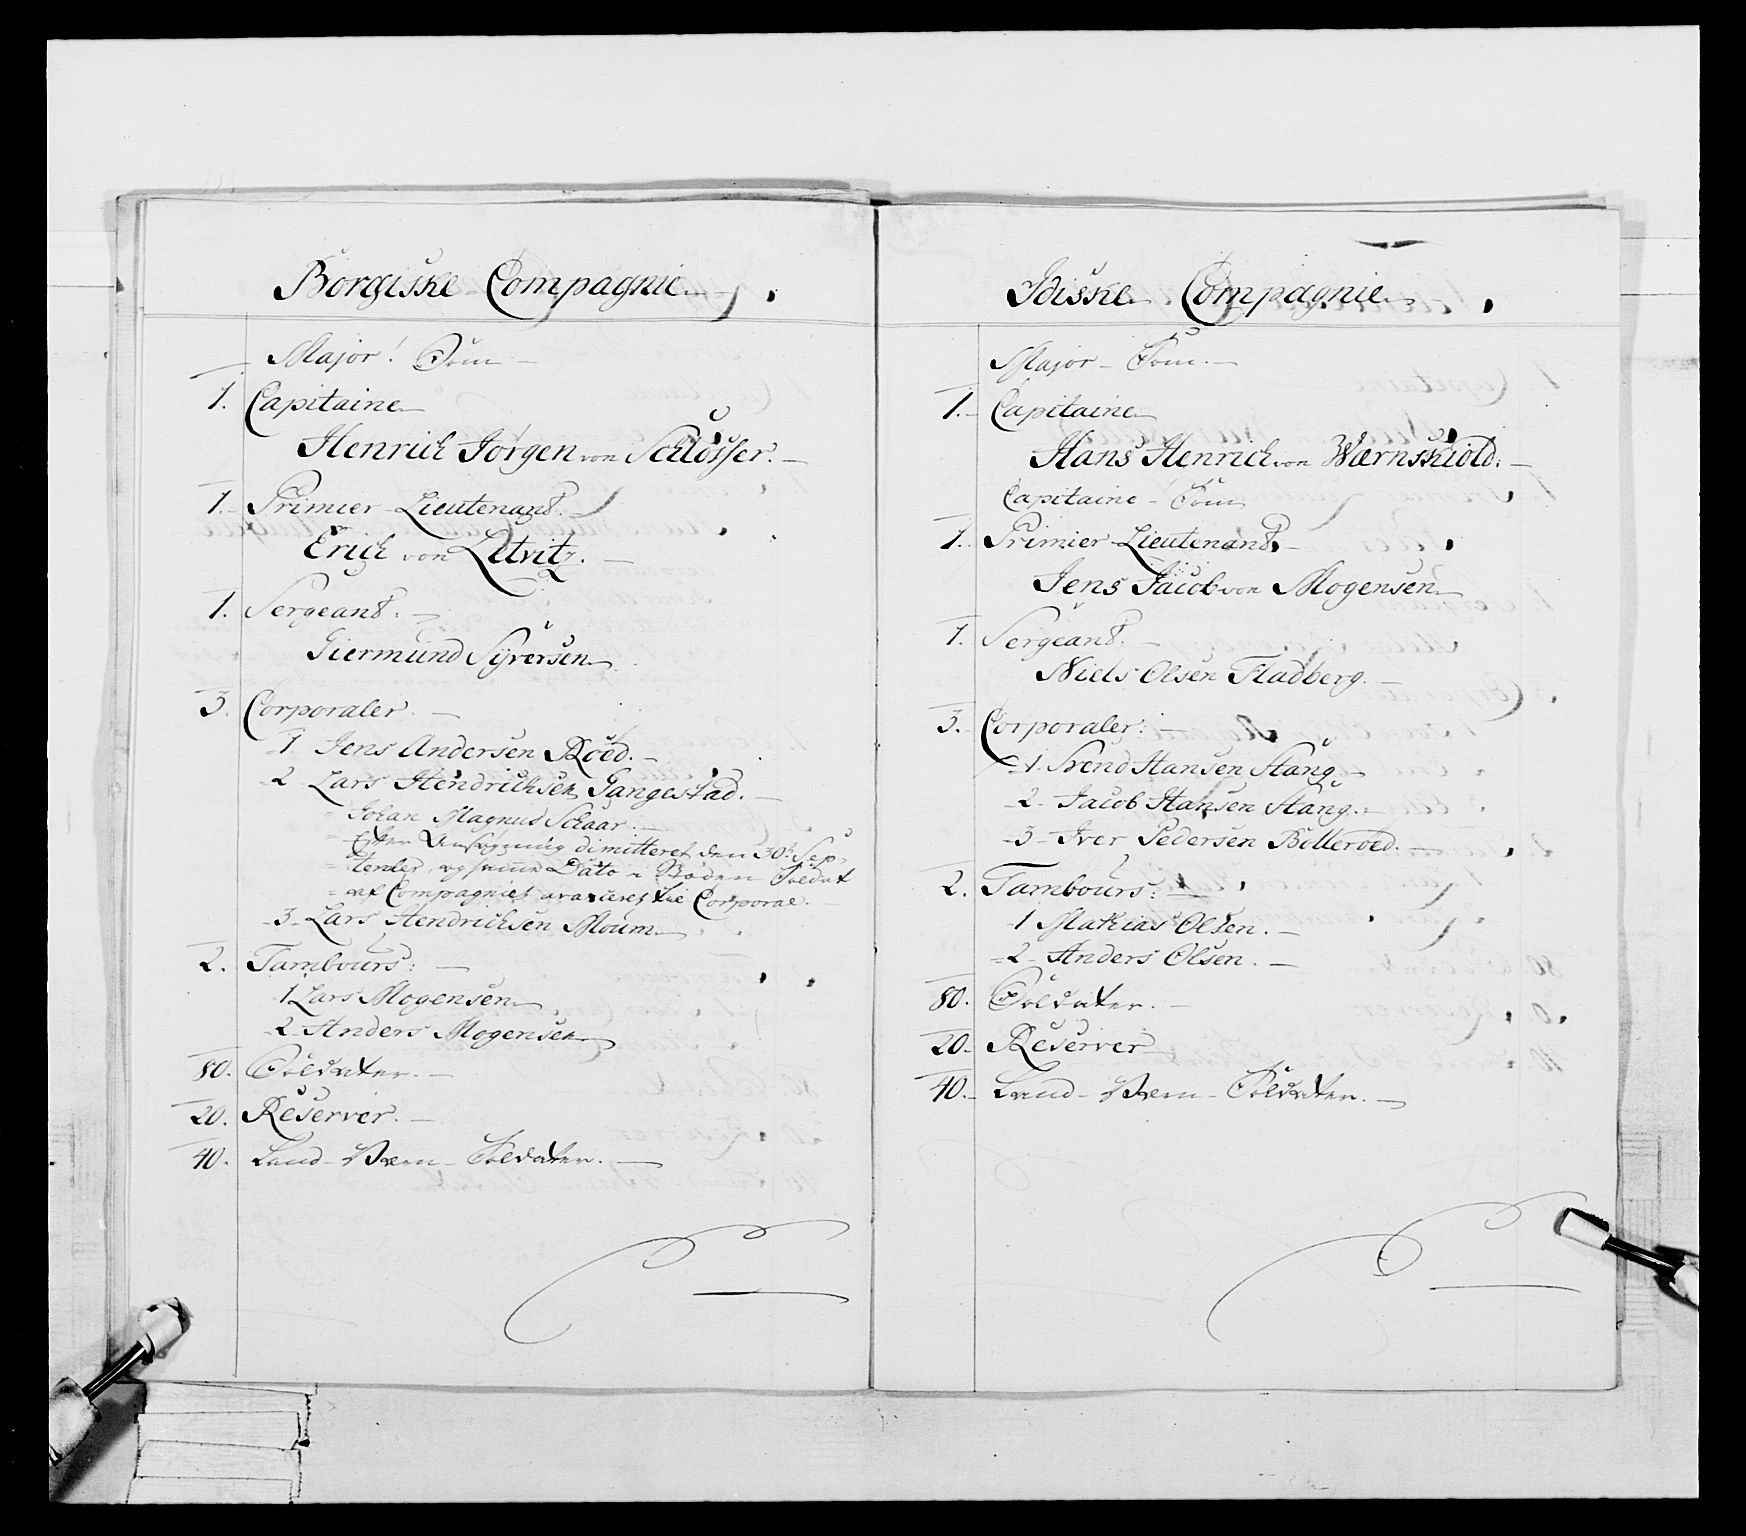 Borgiske Compagnie
Major! Tom
1. Capitaine
Henrich Jørgen von Schlösser.
1. Primier Lieutenant.
Erich von Letvitz.
1. Sergeant.
Giermund Syversen
3. Corporaler.
1 Jens Andersen Röed.
2 Lars Hendrichsen Gangestad.
Johan Magnus Schaar.
Efter Ansøgning dimitteret den 30t Sep-
tembr, og samme Dato Soldat
af Compagniet avanceret til Corporal.
3 Lars Hendrichsen Moum
2. Tambours:
1 Lars Mogensen
2 Anders Mogensen
80. Soldater.
20. Reserver.
40. Land-Værn-Soldater.
Idiske Compagnie
Major Tom.
1. Capitaine
Hans Henrich von Wærnskiold.
Capitaine Tom
1. Primier Lieutenant
Jens Jacob von Mogensen
1. Sergeant.
Niels Olsen Fladberg.
3. Corporaler:
1. Svend Hansen Stang.
2. Jacob Hansen Stang.
3 Iver Pedersen Bölleröed.
2. Tambours:
1 Mathias Olsen.
2 Anders Olsen.
80. Soldater.
20. Reserver
40. Land-Værn-Soldater.